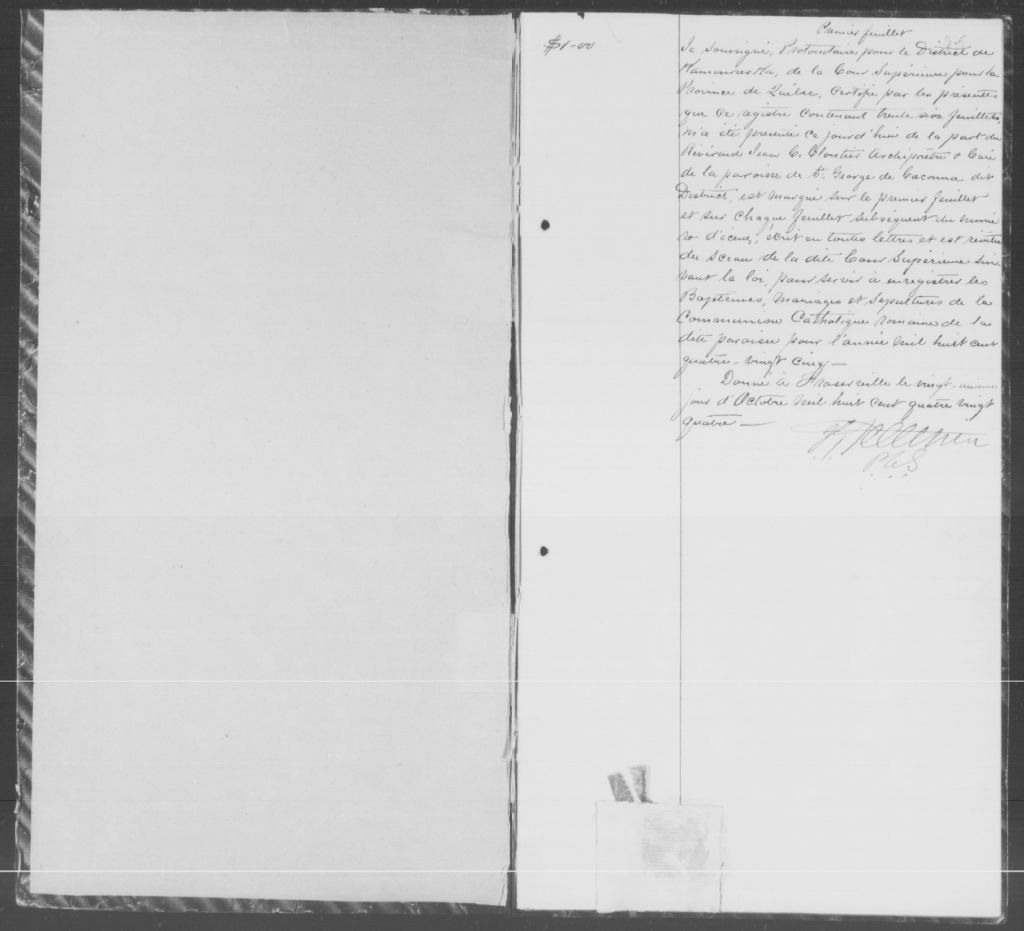 Premier feuillet
$1-00
Je soussigné, Protonotaire pour le District de
Kamouraska, de la Cour Supérieure pour la
Province de Québec, Certifie par les présentes
que ce registre contenant trente six feuillets,
m'a été présenté ce jourd'hui de la part du
Révérend Jean C. Cloutier Archiprêtre & Curé
de la paroisse de St. George de Cacouna dit
District, est marqué sur le premier feuillet
et sur chaque feuillet subséquent du numé
ro d'iceux, écrit en toutes lettres et est revêtu
du sceau de la dite Cour Supérieure sui
vant la loi, pour servir à enregistrer les
Baptêmes, Mariages et Sépultures de la
Communion Catholique romaine de la
dite paroisse pour l'année mil huit cent
quatre-vingt cinq—
Donné à Fraserville le vingt-
jour d'Octobre mil huit cent quatre vingt
quatre—
P.C.S